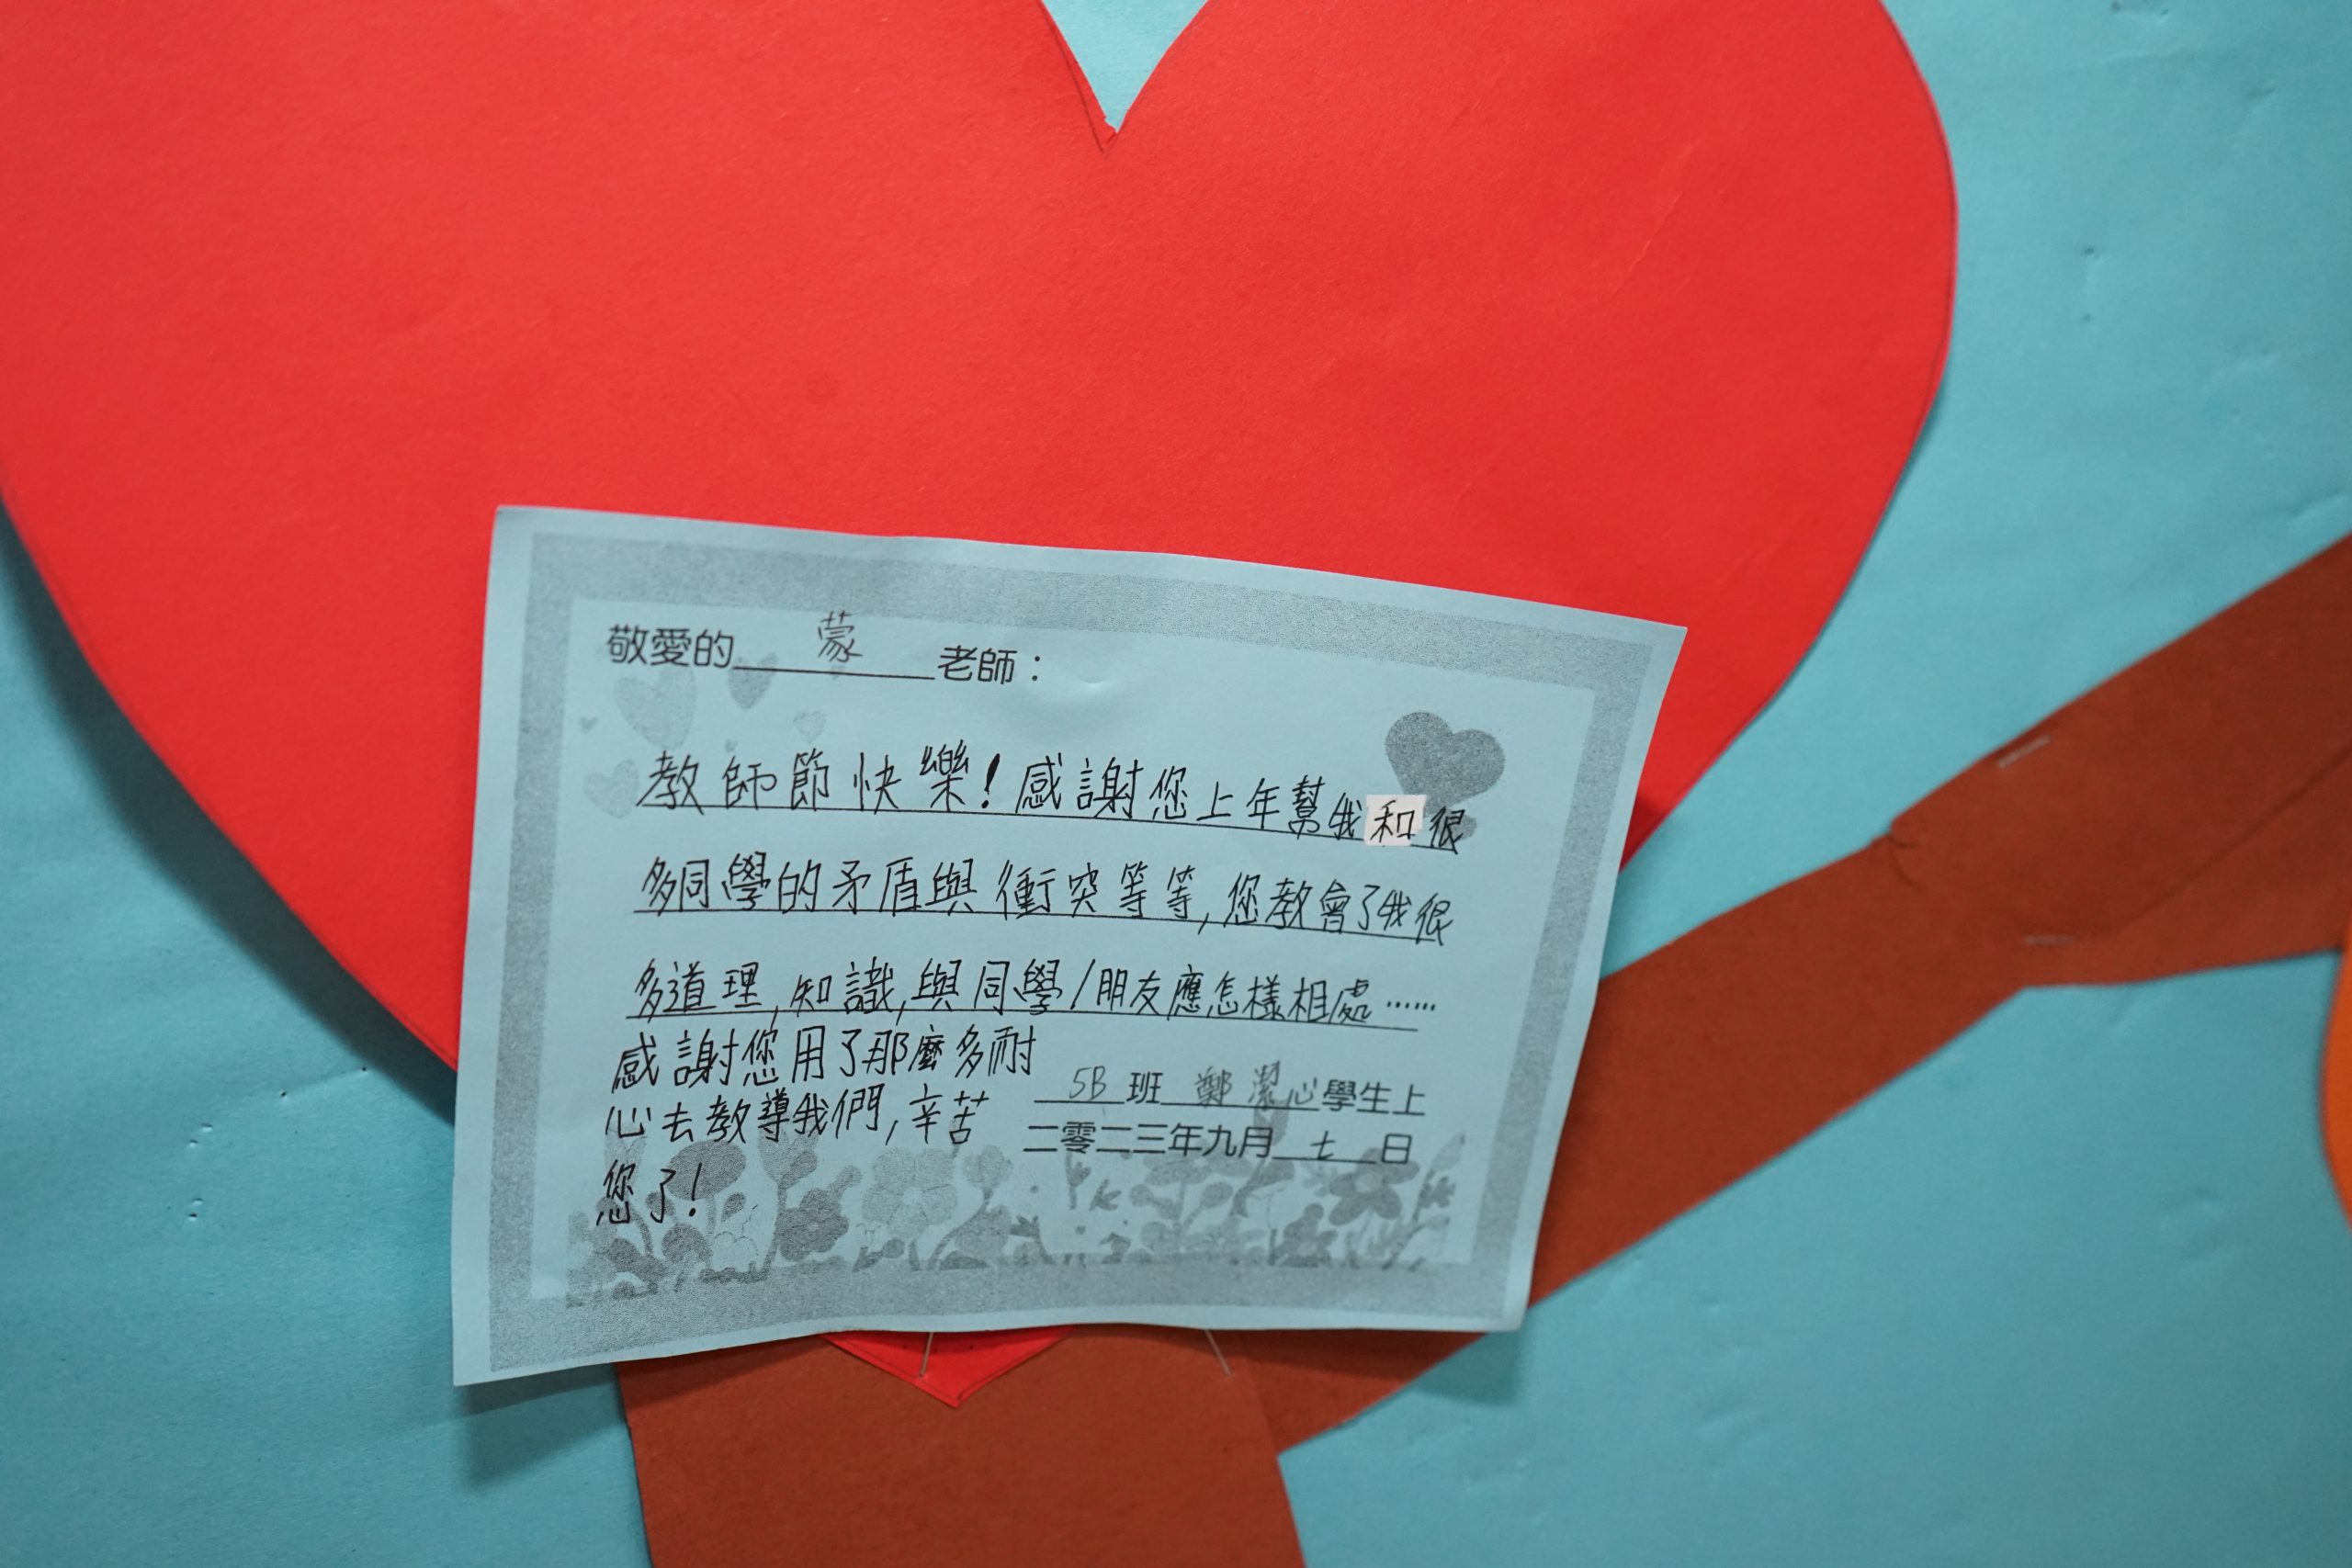 敬愛的蒙老師：
教師節快樂！感謝您上年幫我和很
多同學的矛盾與衝突等等,您教會了我很
多道理,知識,與同學/朋友應怎樣相處……
感謝您用了那麼多耐
心去教導我們,辛苦
您了!
5B班鄭潔心學生上
二零二三年九月七日